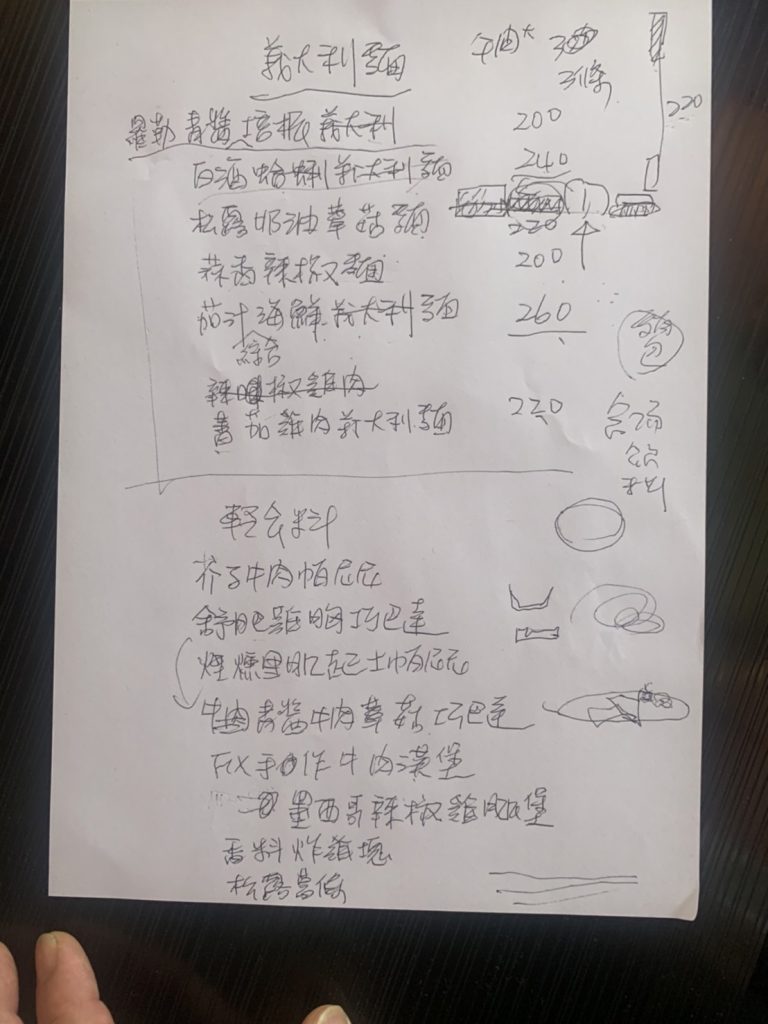 義大利麵
羅勒青醬培根義大利 200
白酒蛤蜊義大利麵 240
松露奶油蕈菇麵 220
蒜香辣椒麵 200
茄汁海鮮義大利麵 260
綜合
辣椒雞肉
蕃茄雞肉義大利麵 220
220
3條
麵包
輕食
芥子牛肉帕尼尼
舒肥雞胸巧巴達
煙燻 起士帕尼尼
青醬牛肉蕈菇巧巴達
手作牛肉漢堡
墨西哥辣椒雞腿堡
香料炸雞塊
松露薯條